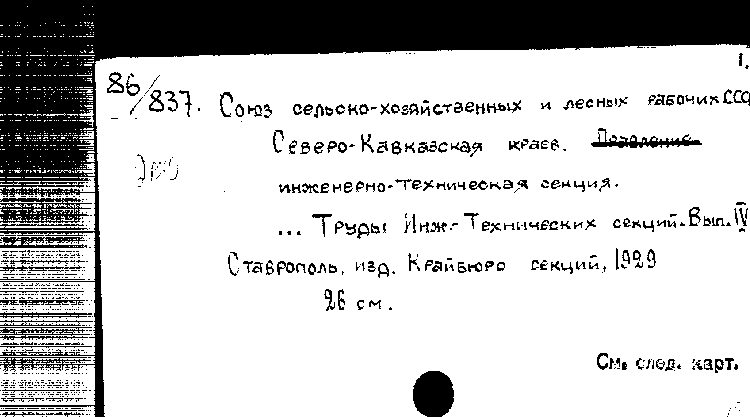 1.
86/837. Союз сельско-хозяйственных и лесных рабочих СССР
Северо-Кавказская краев. Правление
инженерно-техническая секция.
... Труды Инж.-Технических секций. Вып. IV
Ставрополь, изд. Крайбюро секций, 1929
26 см.
См. след. карт.